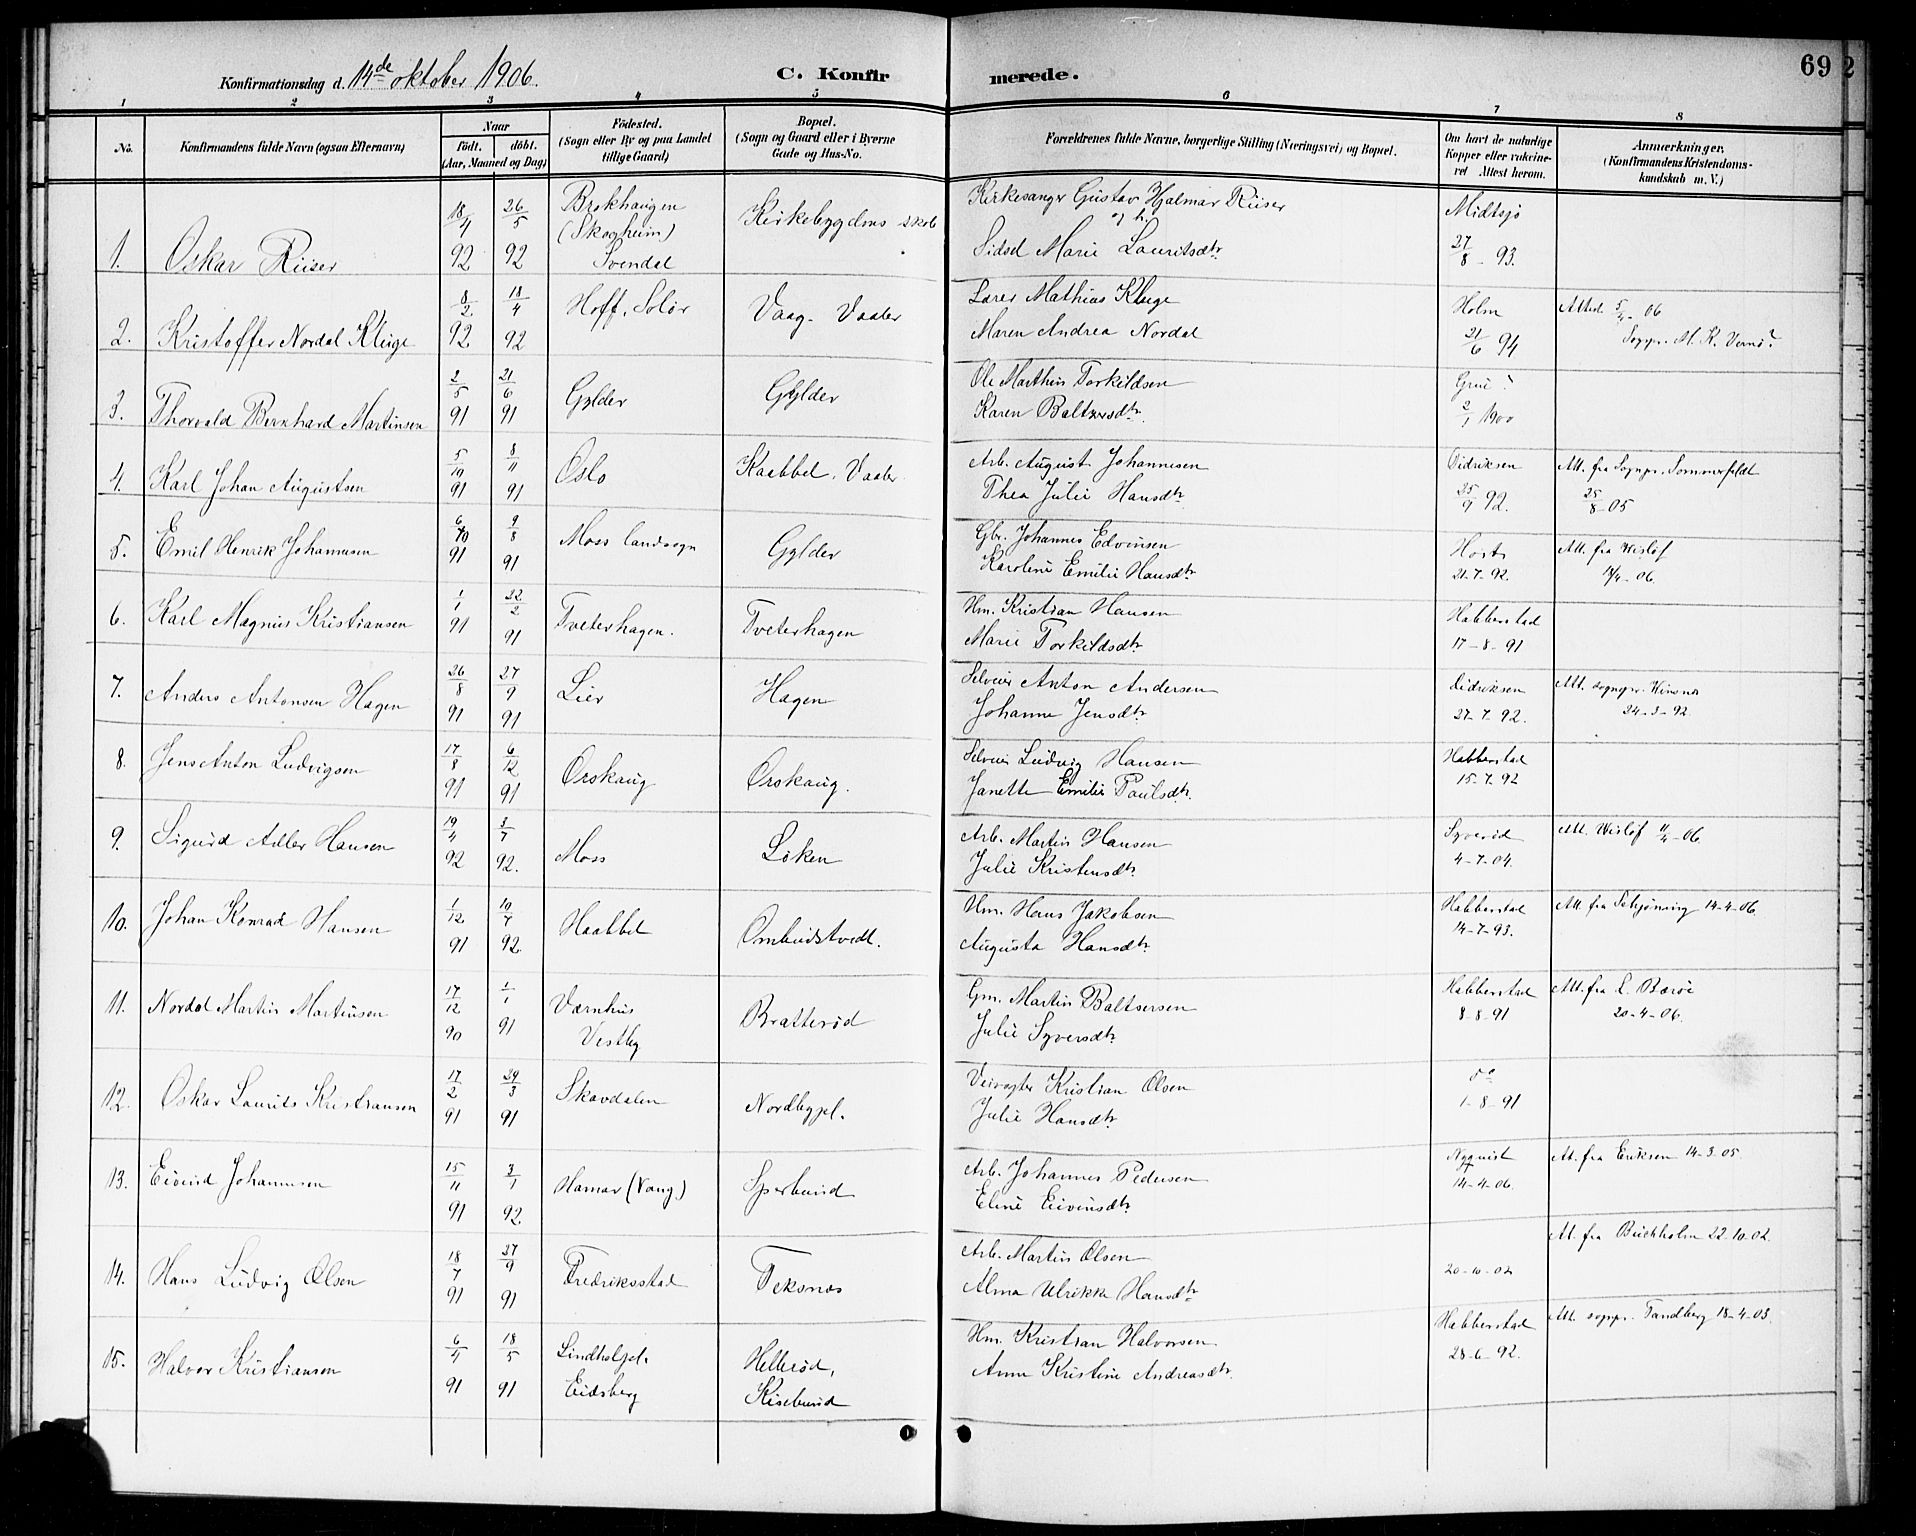 Konfirmationsdag d. 14de oktober 1906.
C. Konfirmerede.
69
1 2 3 4 5 6 7 8
No.
Konfirmandens fulde Navn (ogsaa Efternavn)
Naar
født. døbt.
(Aar, Maaned og Dag)
Fødested.
(Sogn eller By og paa Landet
tillige Gaard)
Bopæl.
(Sogn og Gaard eller i Byerne
Gade og Hus-No.
Forældrenes fulde Navne, borgerlige Stilling (Næringsvei) og Bopæl.
Om havt de naturlige
Kopper eller vakcine-
ret Attest herom.
Anmærkninger,
(Konfirmandens Kristendoms-
kundskab m. V.)
1. Oskar Riiser 18/4 92 26/5 92
Brokhaugen
(Skogheim)
Svendal
Kirkebygdens skole
Kirkesanger Gustav Hjalmar Riiser
og h.
Sidsel Marie Lauritsdtr
Midtsjø
27/8 - 93.
2. Kristoffer Nordal Kluge 8/2 92 18/4 92
Hoff, Solør
Vaag. Vaaler
Lærer Mathias Kluge
Maren Andrea Nordal
Holm
21/6 94
Attest 5/4 - 06
Sogpr. M. K.
3. Thorvald Bernhard Martinsen 2/5 91 21/6 91
Gylder
Gylder
Ole Marthin Torkildsen
Karen Baltzersdtr.
Grue
2/1 1900
4. Karl Johan Augustsen 5/10 91 8/11 91
Oslo
Kaabbel. Vaaler
Arb. August Johannesen
Thea Julie Hansdtr
Didriksen
25/9 92.
Att. fra Sognpr. Sommerfeldt
25/8 - 05
5. Emil Henrik Johannesen 6/ 91 9/8 91
Moss landsogn
Gylder
Gbr. Johannes Edvinsen
Karoline Emilie Hansdtr
Horts
21-7-92.
Att. fra Wisløf
/4 - 06.
6. Karl Magnus Kristiansen 1/1 91 22/2 91
Tveterhagen.
Tveterhagen
Hm. Kristian Hansen
Marie Torkildsdtr
Habberstad
17-8-91
7. Anders Antonsen Hagen 26/8 91 27/9 91
Lier
Hagen
Selveier Anton Andersen
Johanne Jensdtr
Didriksen
27-7-92.
Att. sognpr. Winsnes
24-3-92
8. Jens Anton Ludvigsen 17/8 91 6/12 91
Orskaug
Orskaug.
Selveier Ludvig Hansen
Janette Emilie Paulsdtr.
Habberstad
15-7-92
9. Sigurd Adler Hansen 19/4 92 3/7 92.
Moss
Løken
Arb. Martin Hansen
Julie Kristensdtr
Syverud
4-7-04.
Att. Wisløf 11/4 - 06.
10. Johan Konrad Hansen 1/12 91 10/7 92
Haabbel
Ombudstvedt.
Hm. Hans Jakobsen
Augusta Hansdtr
Habberstad
14-7-93.
Att. fra Schjønning 14-4-06.
11. Nordal Martin Martinsen 17/12 90 1/1 91
Værnhus
Vestby
Bratterød
Gm. Martin Baltsersen
Julie Syversdtr
Habberstad
8-8-91
Att. fra L. Bærøe
20-4-06.
12. Oskar Laurits Kristiansen 17/2 91 29/3 91
Skavdalen
Nordbypl.
Veivogter Kristian Olsen
Julie Hansdtr
Do
1-8-91
13. Eivind Johannesen 15/11 91 3/1 92.
Hamar (Vang)
Sperbund
Arb. Johannes Pedersen
Eline Eivensdtr
Nyquist
14-4-06.
At. fra Eriksen 14-3-05
14. Hans Ludvig Olsen 18/7 91 27/9 91
Fredriksstad
Teksnes
Arb. Martin Olsen
Alma Ulrikke Hansdtr
20-10-02
At. fra Buchholm 22.10.02.
15. Halvor Kristiansen 6/4 91 18/5 91
Lindholpl.
Eidsberg
Hellerød,
Kisebund
Hm. Kristian Halvorsen
Anne Kristine Andreasdtr.
Habberstad
28-6-92.
Att. sognpr. Tandberg 18-4-03.